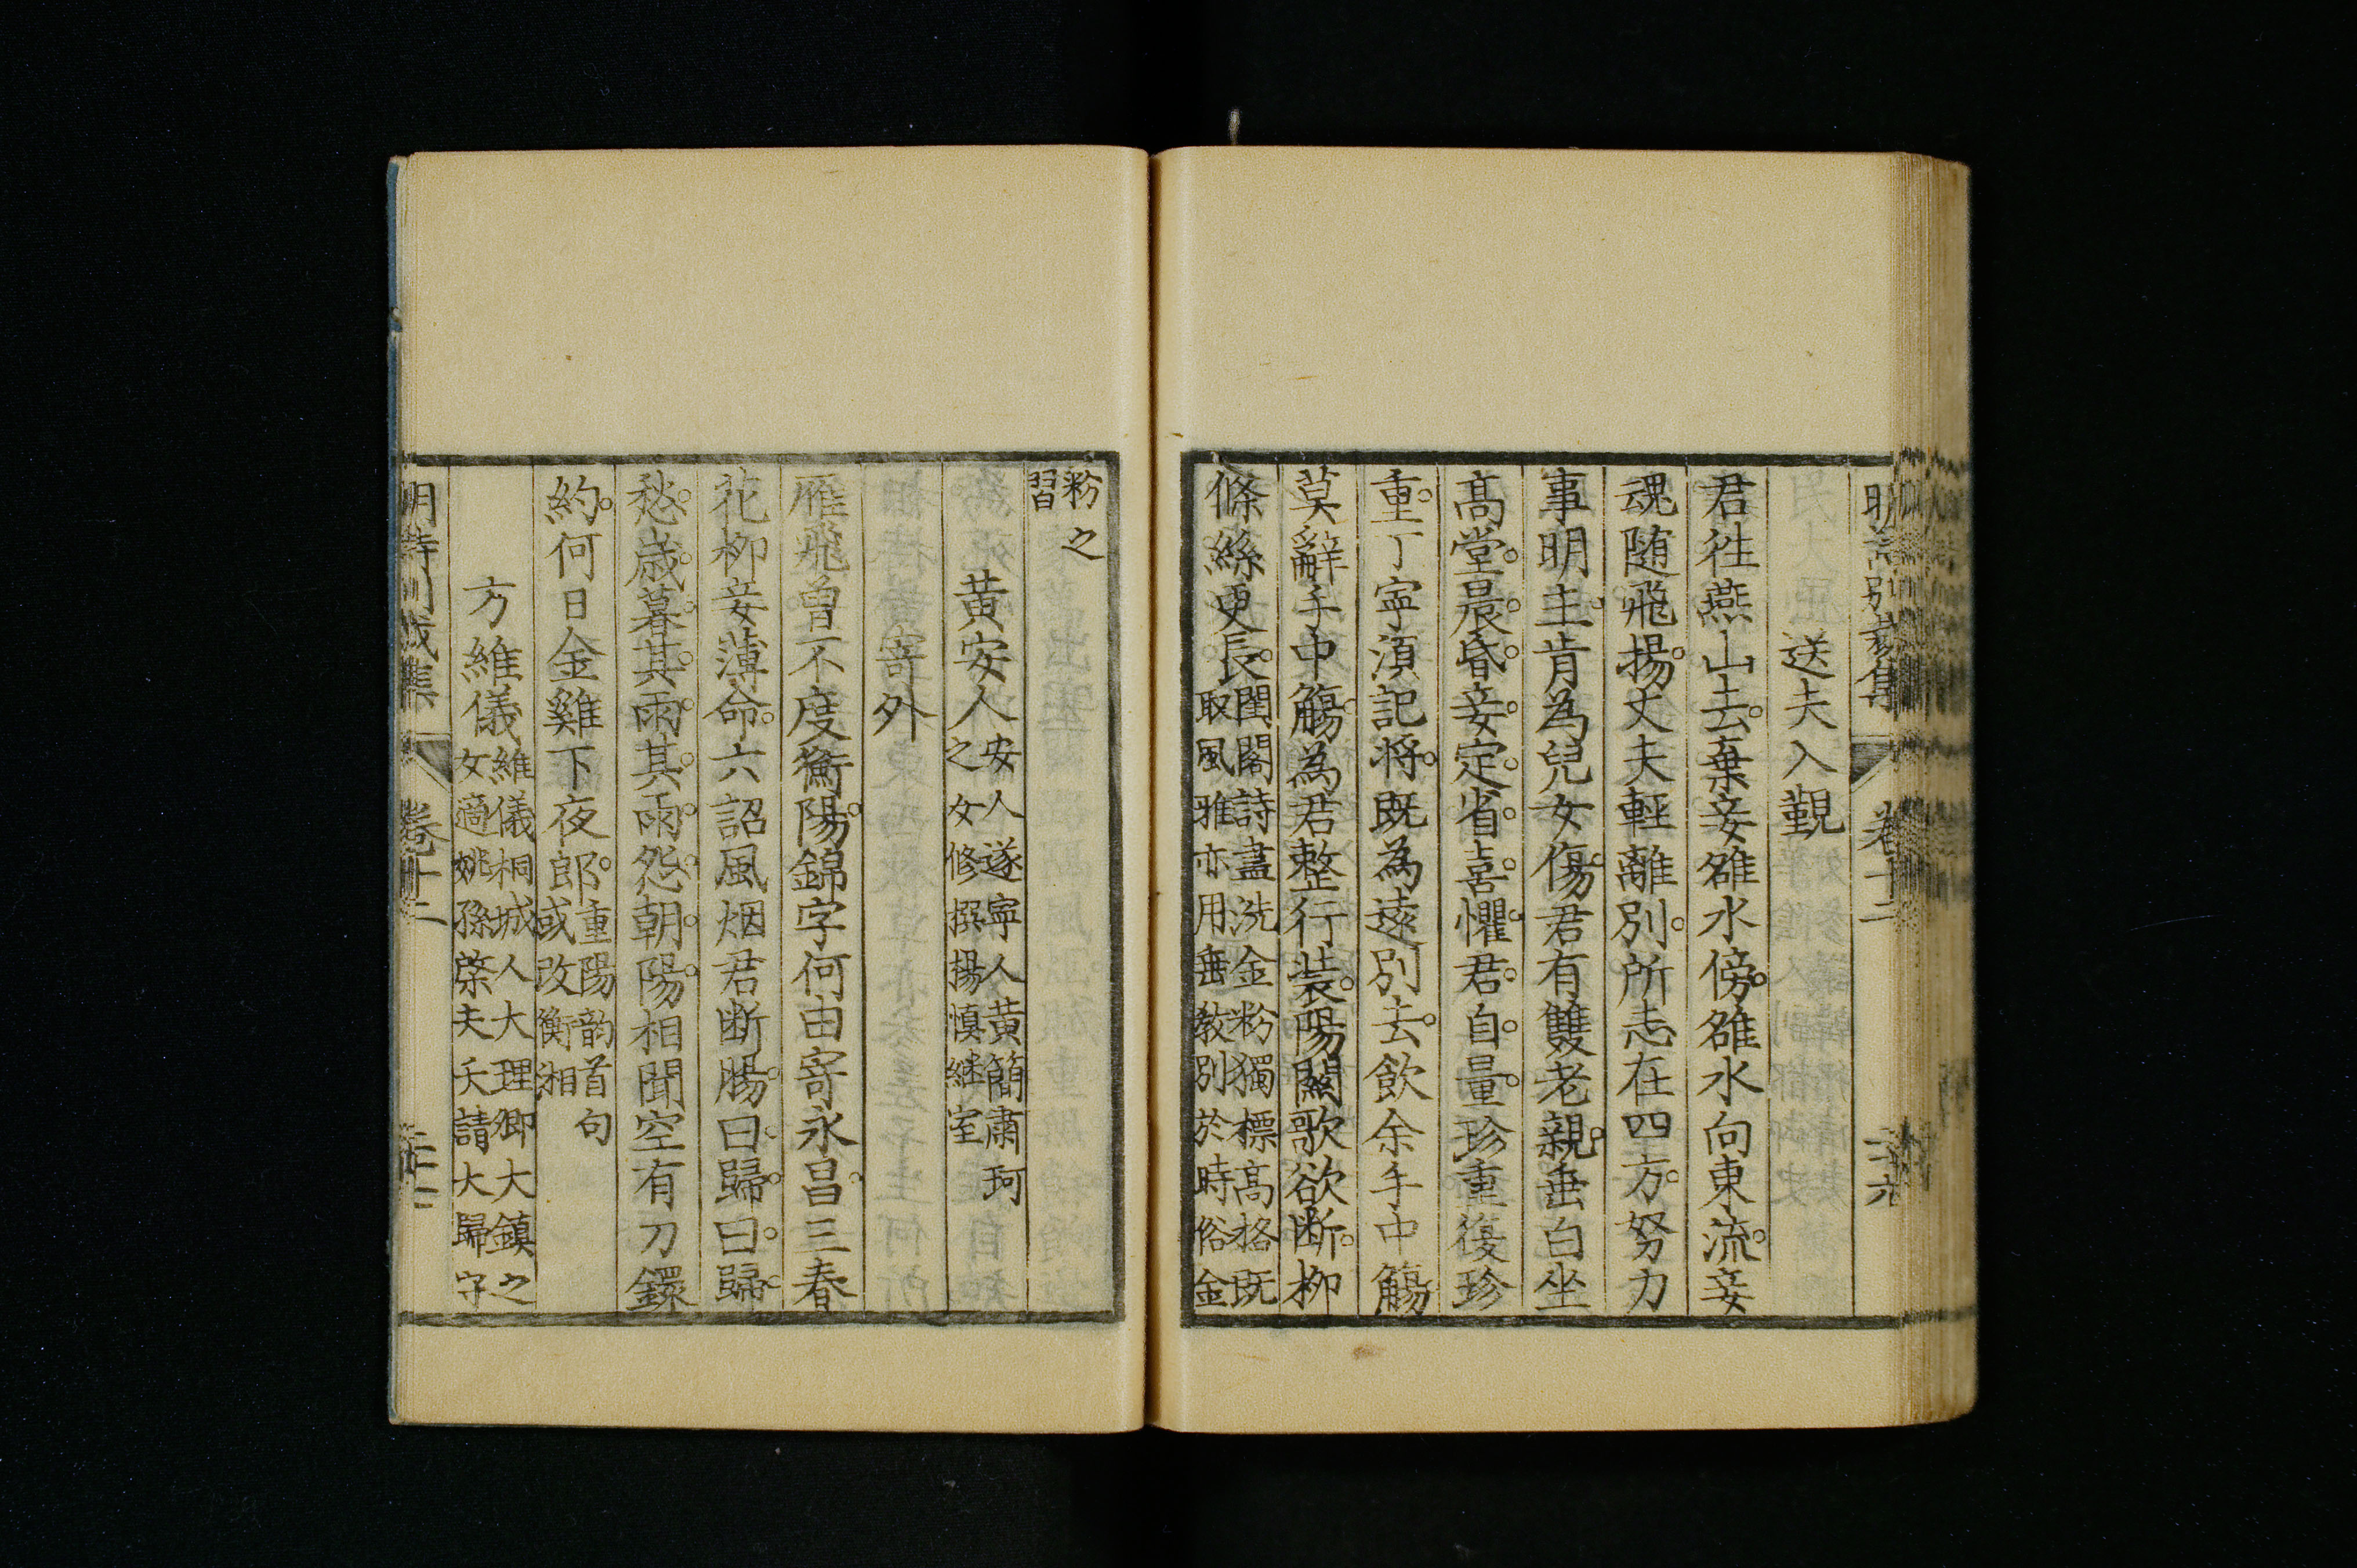 明詩別裁集 卷十二
送夫入覲
君徃燕山去棄妾雒水傍雒水向東流妾
魂随飛揚丈夫輕離別所志在四方努力
事明主肯為兒女傷君有雙老親垂白坐
高堂晨昏妾定省喜懼君自量珍重復珍
重丁寜湏記将既為遠別去飲余手中觴
莫辭手中觴為君整行装陽關歌欲断柳
條絲更長閨閣詩盡洗金粉獨標高格既
取風雅亦用垂教別於時俗金
粉之
習
黄安人安人遂寧人黄簡肅珂
之女修撰揚慎継室
寄外
雁飛曾不度衡陽錦字何由寄永昌三春
花柳妾薄命六詔風烟君断腸曰歸曰歸
愁歲暮其雨其雨怨朝陽相聞空有刀鐶
約何日金雞下夜郎重陽韵首句
或改衡湘
方維儀維儀桐城人大理卿大鎮之
女適姚孫棨夫夭請大歸守
明詩別裁集 卷十二